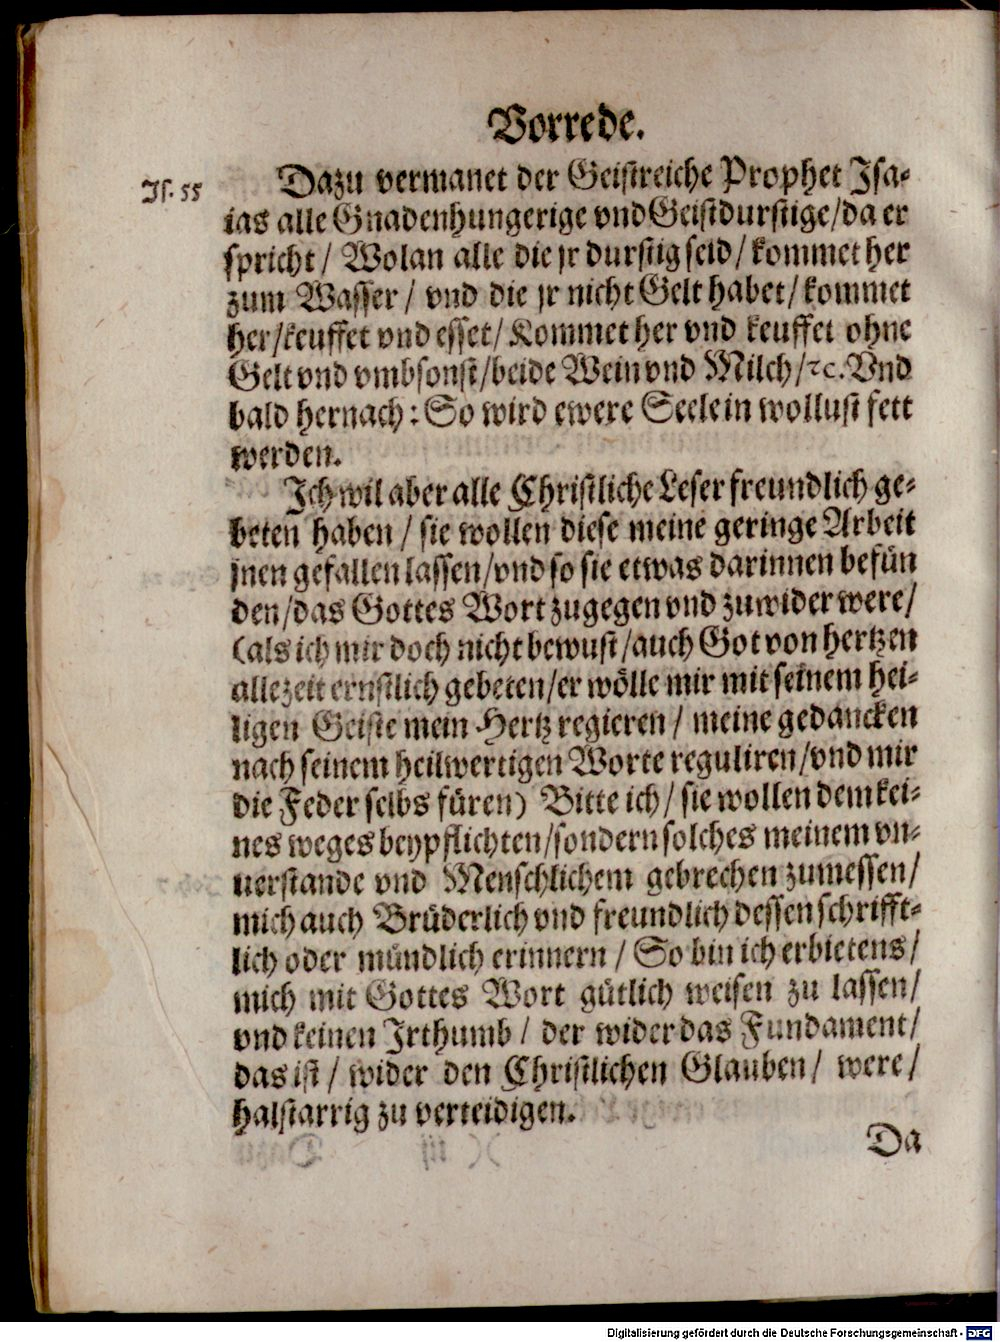 Vorrede.
Js. 55
Dazu vermanet der Geistreiche Prophet Jsa-
ias alle Gnadenhungerige vnd Geistdurstige/da er
spricht/ Wolan alle die jr durstig seid/ kommet her
zum Wasser/ vnd die jr nicht Gelt habet/ kommet
her/keuffet vnd esset/ Kommet her vnd keuffet ohne
Gelt vnd vmbsonst/beide Wein vnd Milch/ꝛc. Vnd
bald hernach: So wird ewere Seele in wollust fett
werden.
Jch wil aber alle Christliche Leser freundlich ge-
beten haben/ sie wollen diese meine geringe Arbeit
jnen gefallen lassen/vnd so sie etwas darinnen befün
den/das Gottes Wort zugegen vnd zuwider were/
(als ich mir doch nicht bewust/auch Got von hertzen
allezeit ernstlich gebeten/er wölle mir mit seinem hei-
ligen Geiste mein Hertz regieren/ meine gedancken
nach seinem heilwertigen Worte reguliren/vnd mir
die Feder selbs füren) Bitte ich/ sie wollen dem kei-
nes weges beypflichten/sondern solches meinem vn-
uerstande vnd Menschlichem gebrechen zumessen/
mich auch Brüderlich vnd freundlich dessen schrifft-
lich oder mündlich erinnern/ So bin ich erbietens/
mich mit Gottes Wort gütlich weisen zu lassen/
vnd keinen Jrthumb/ der wider das Fundament/
das ist/ wider den Christlichen Glauben/ were/
halstarrig zu verteidigen.
Da
Digitalisierung gefördert durch die Deutsche Forschungsgemeinschaft - DFG